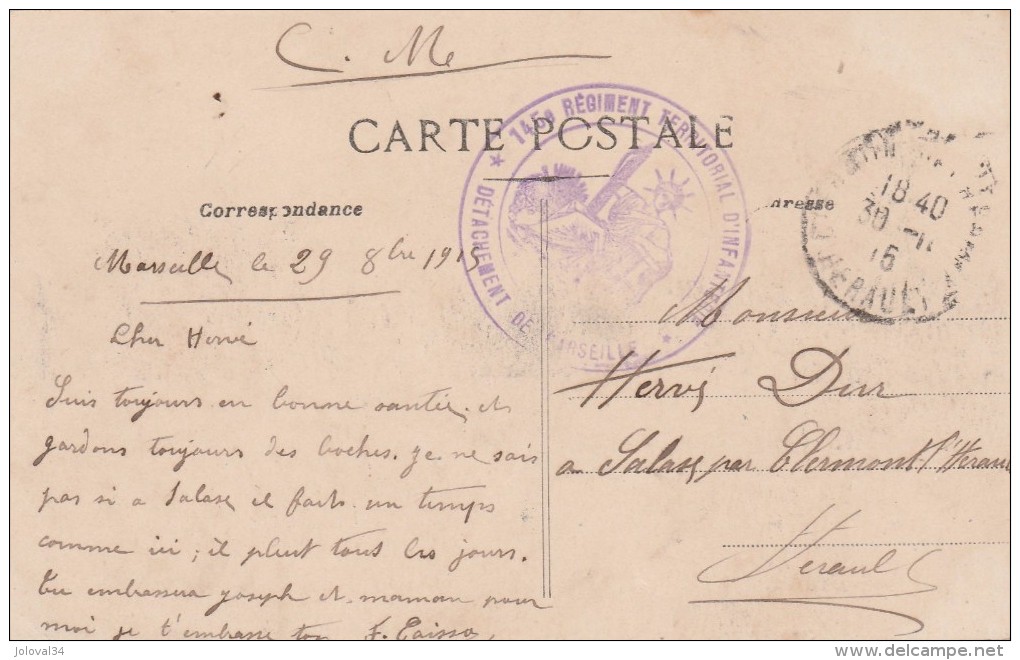 C. M
CARTE POSTALE
★ 145e RÉGIMENT TERRITORIAL D'INFANTERIE ★
DÉTACHEMENT DE MARSEILLE
Correspondance
Adresse
18 40
30
15
HERAULT
Marseille le 29 8bre 1915
Cher Hervé
Suis toujours en bonne santée. et
gardons toujours des boches. je ne sais
pas si a Salase il fait un temps
comme ici; il pleut tous les jours.
Tu embassera joseph et maman pour
moi je t'embasse ton F.
Monsieur
Hervé
a Salase par Clermont l'Herault
Herault
joloval34
delcampe.net